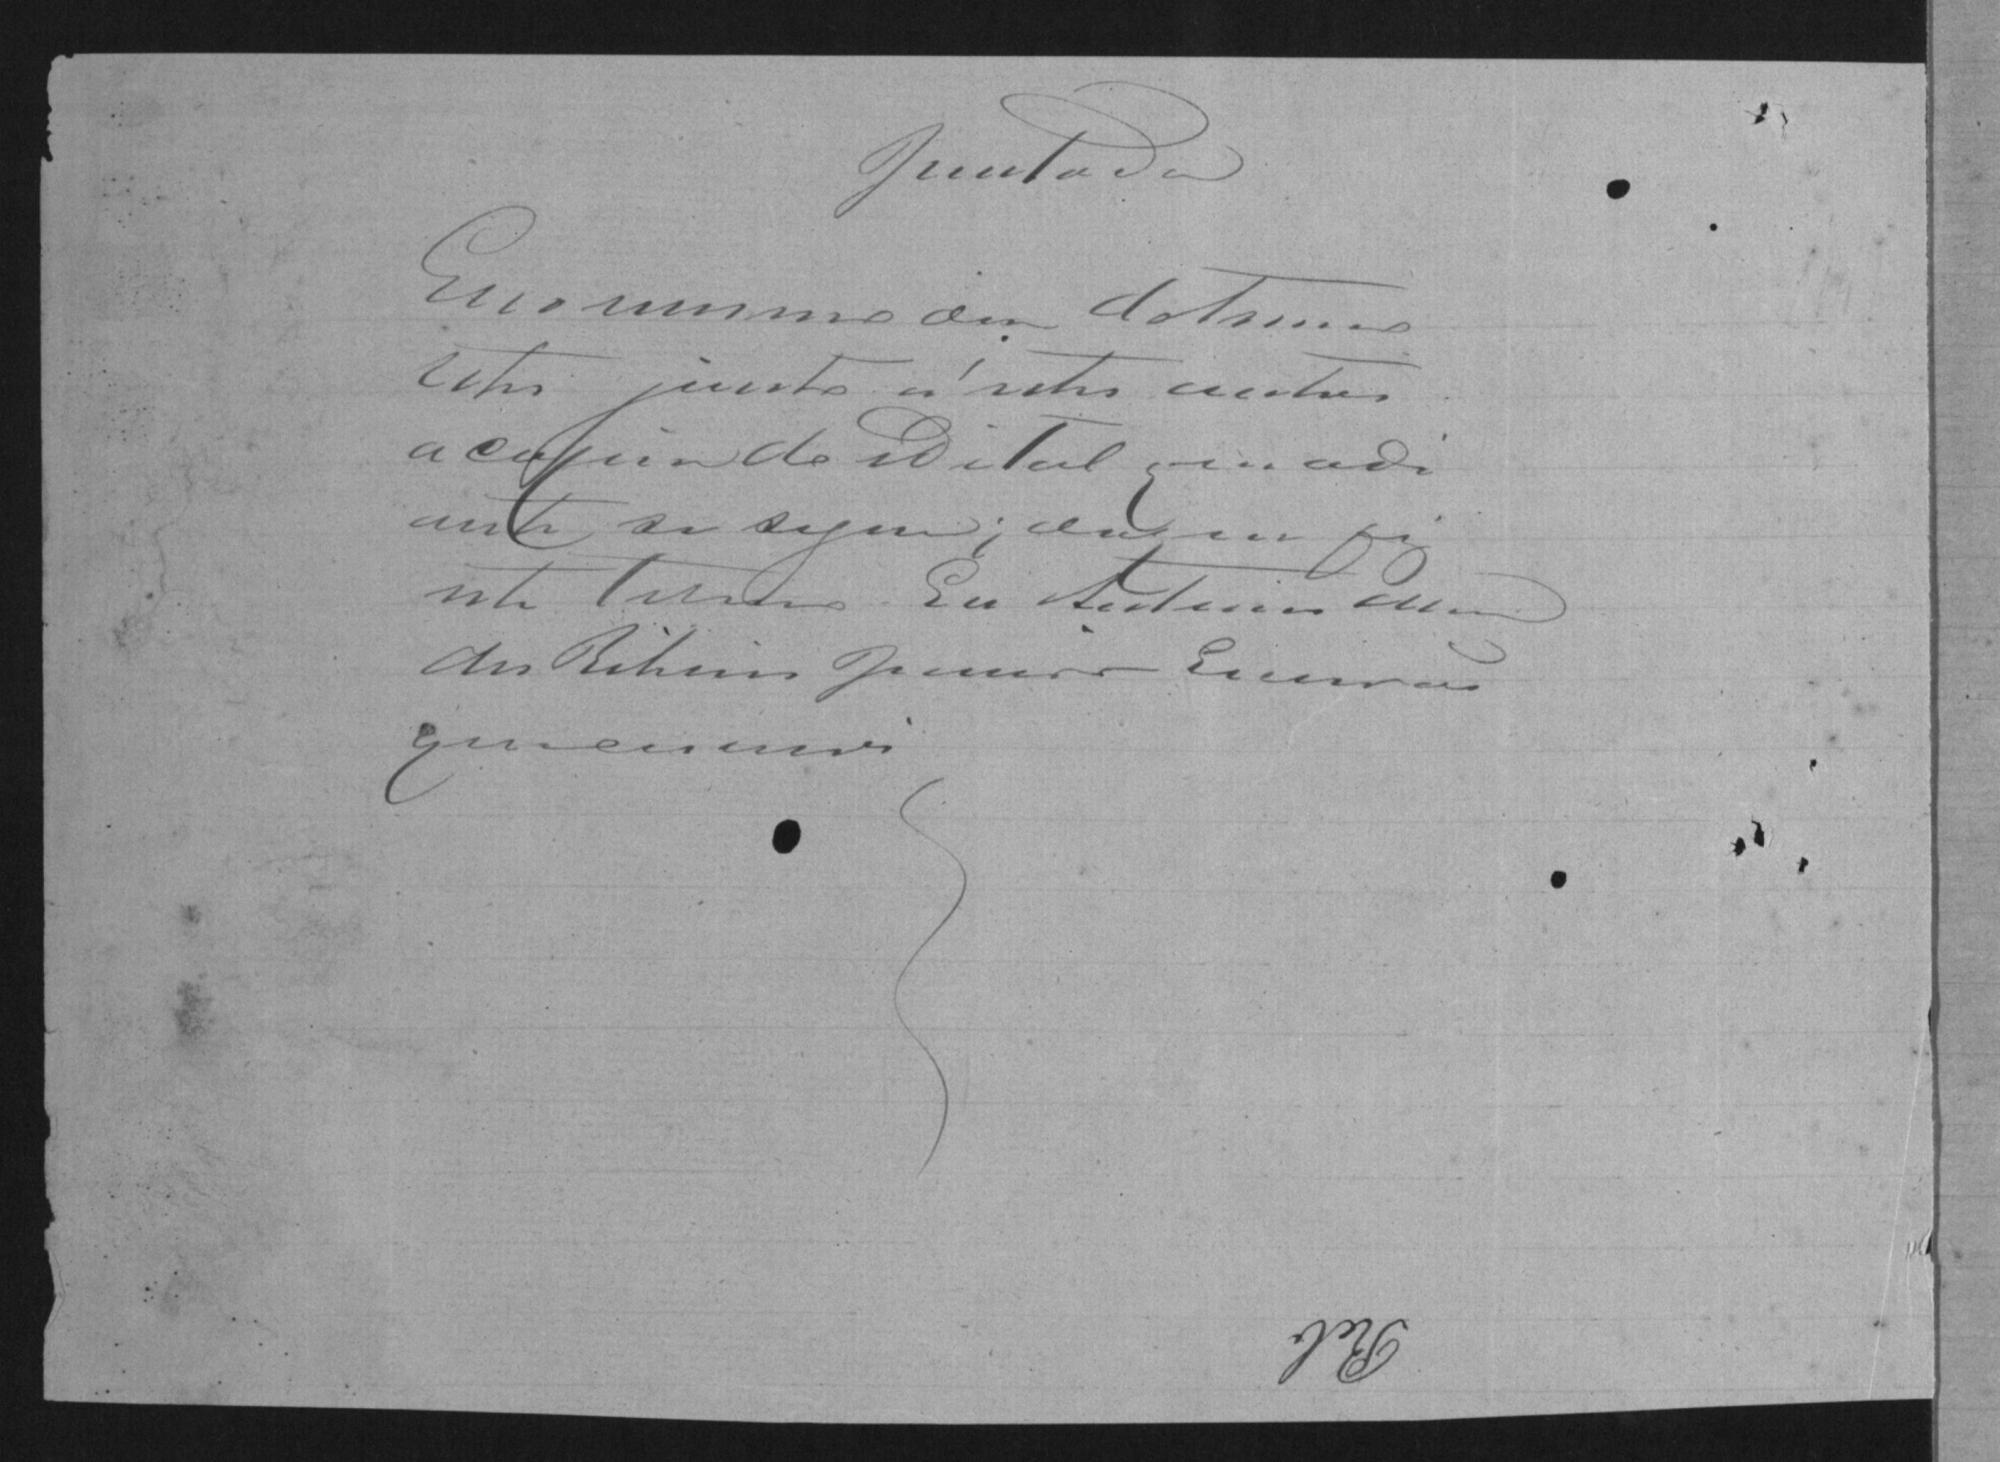 Juntada
E no mesmo dia do termo
retro junto a estes autos
a copia do Edital que adi
ante se segue; do que fiz
este termo. Eu Antonio
des Ribeiro Junior Escrivão
que escrevi